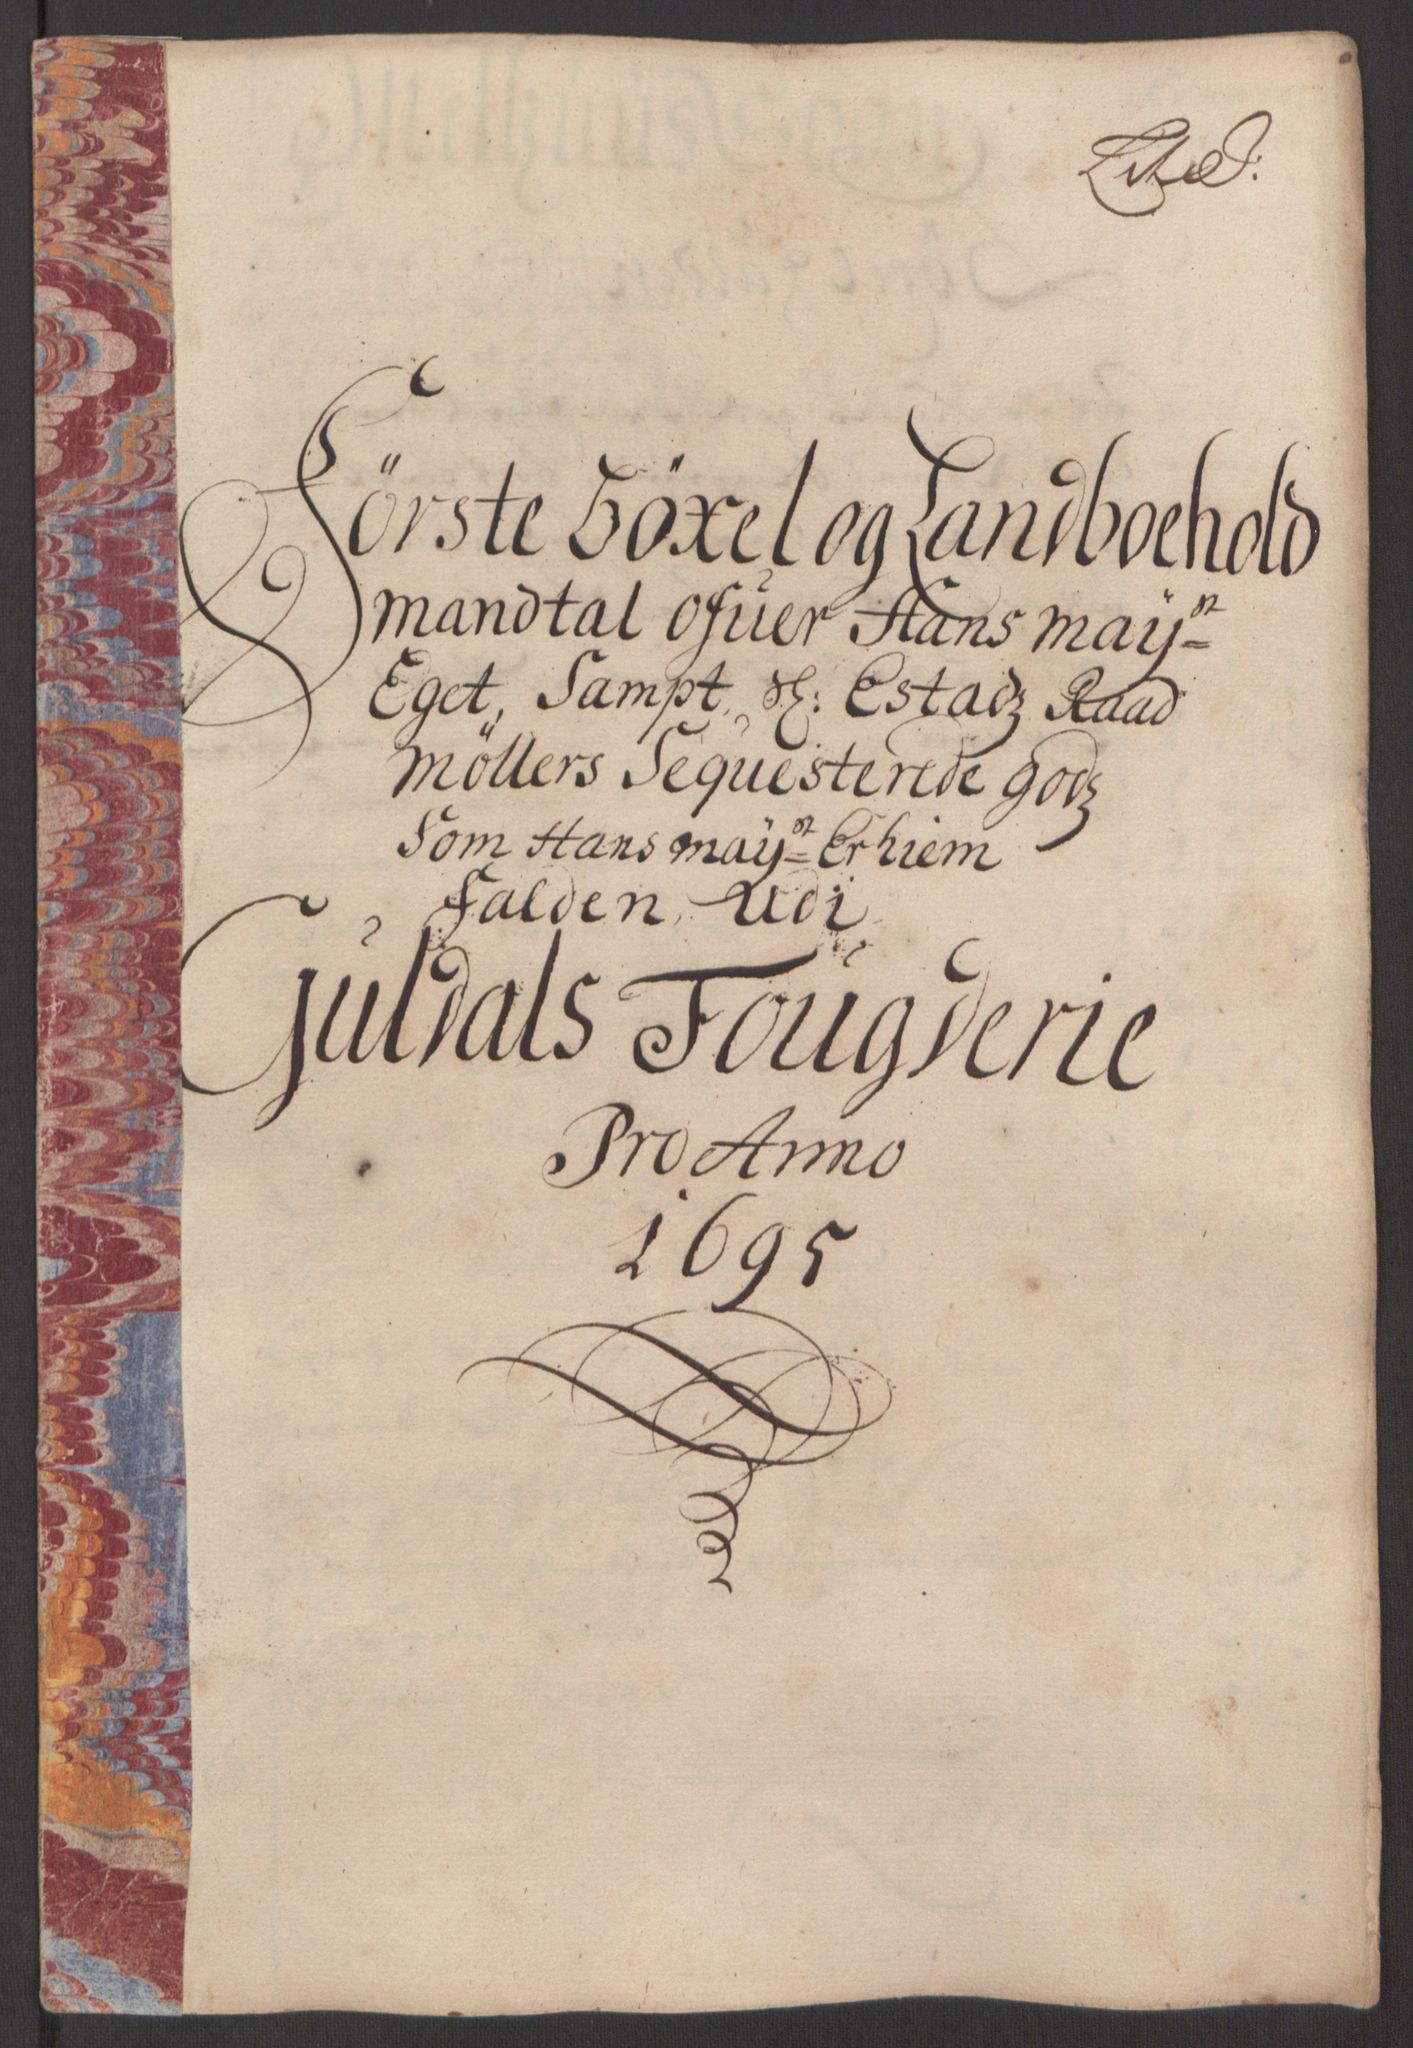 Lit: d:
Förste böxel og Landboehold
mandtal ofuer Hans maÿst
Eget, Sampt, Sl: Estadz Raad
möllers Sequesterede godz
Som Hans maÿst Er hiem
falden, Udi
Guldals Fougderie
Pro Anno
1695